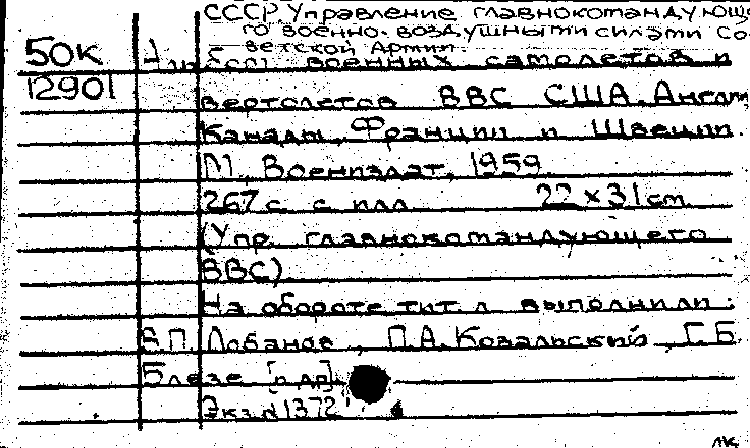 СССР Управление главнокомандующе
го военно-воздушными силами Со
ветской Армии.
50К
12901
военных самолетов и
вертолетов ВВС США, Англии
Канады, Франции и Швеции.
М., Воениздат, 1959
267 с. с илл. 22 × 31 см
(Упр. главнокомандующего
ВВС)
На обороте тит. л. выполнили:
Лобанов, П.А. Ковальский, Г.Б.
Блезе [и др]
Экз. N 1372